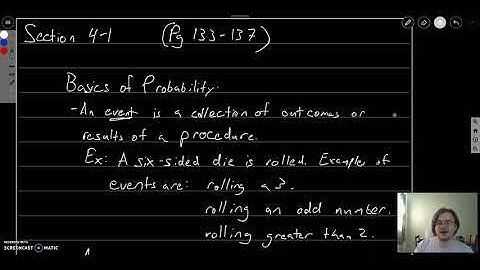 Section 4-1 (Pg 133-137)
Basics of Probability.
- An event is a collection of outcomes or
results of a procedure.
Ex: A six-sided die is rolled. Examples of
events are: rolling a 3.
rolling an odd number.
rolling greater than 2.
RECORDED WITH
SCREENCAST MATIC